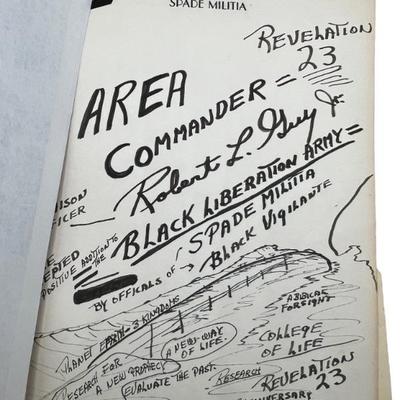 SPADE MILITIA
REVELATION
23
AREA
COMMANDER =
Robert L. Guy Jr.
BLACK LIBERATION ARMY =
POSITIVE ADDITION TO
THE
BY OFFICALS OF SPADE MILITIA
BLACK VIGILANTE
PLANET EARTH - 3 KINGDOMS
A NEW WAY
OF LIFE.
A BIBICAL
FORSIGHT
RESEARCH FOR
A NEW PROPHECY
EVALUATE THE PAST.
RESEARCH
COLLEGE
OF LIFE
REVELATION
23